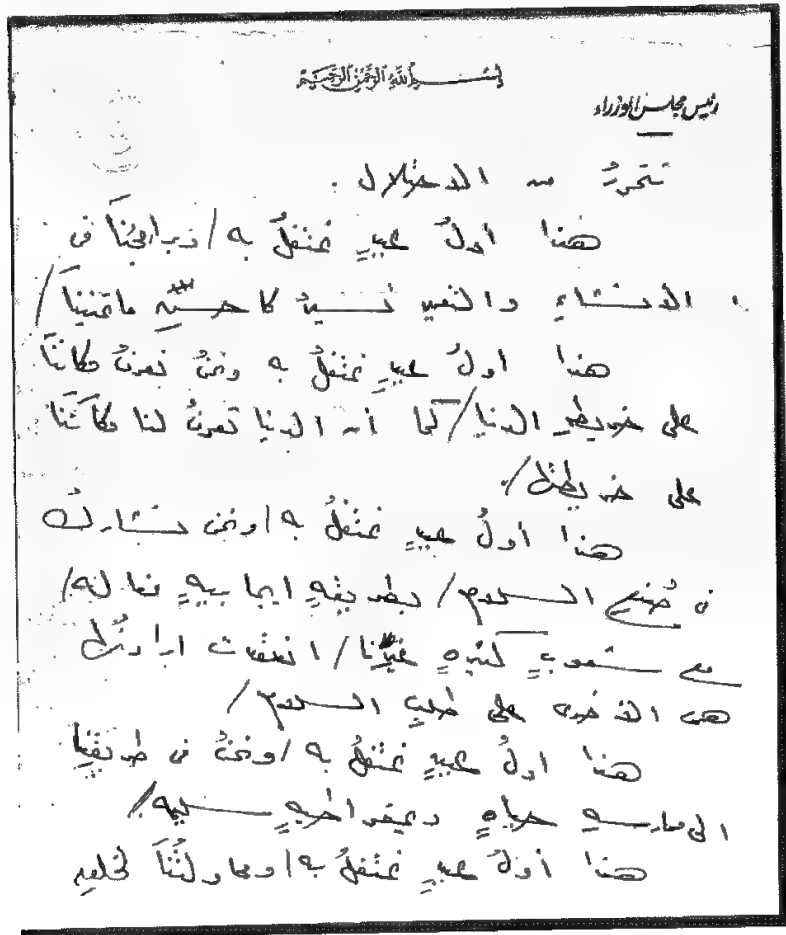 بسم الله الرحمن الرحيم
رئيس مجلس الوزراء
نتحررُ من الاحتلال .
هذا أولُ عيدٍ نحتفلُ به / وبرامجُنا فى
الأنشاءِ والتعمير تسيرُ كأحسنِ ما تمنينا /
هذا أولُ عيدٍ نحتفلُ به ونحنُ نعرفُ مكانَنا
على خريطةِ الدنيا / كما أن الدنيا تعرفُ لنا مكانَنا
على خريطتها /
هذا أولُ عيدٍ نحتفلُ به / ونحن نشاركُ
فى صُنعِ السلام / بطريقةٍ ايجابيةٍ فعاله /
مع شعوبٍ كثيرةٍ غيرنا / اتفقت ارادتُها
هى الأخرى على طلبِ السلام /
هذا اولُ عيدٍ نحتفلُ به / ونحنُ فى طريقِنا
الى ممارسةِ حياةٍ ديمقراطيةٍ سليمه /
هذا أولُ عيدٍ نحتفلُ به / ومحاولتُنا لخلقِ